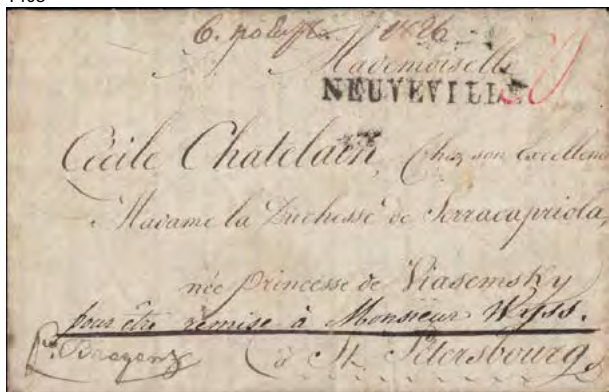 6. 1826
Mademoiselle
NEUVEVILLE
Cécile Chatelain, Chez son Excellence
Madame la Duchesse de Serracapriola,
née Princesse de Viasemsky
pour être remise à Monsieur Wyss.
Bregenz
à St. Pétersbourg